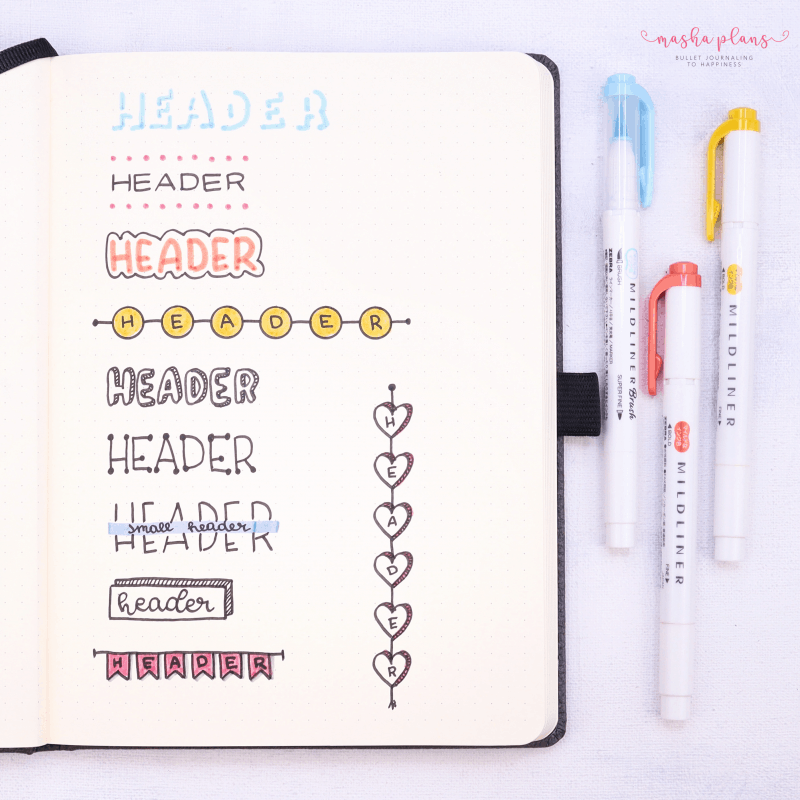 masha plans
BULLET JOURNALING
TO HAPPINESS
HEADER
HEADER
HEADER
HEADER
HEADER
HEADER
HEADER
small header
header
HEADER
HEADER
ZEBRA
BRUSH
MILDLINER Brush
SUPER FINE
BOLD
MILDLINER
FINE
BOLD
MILDLINER
FINE